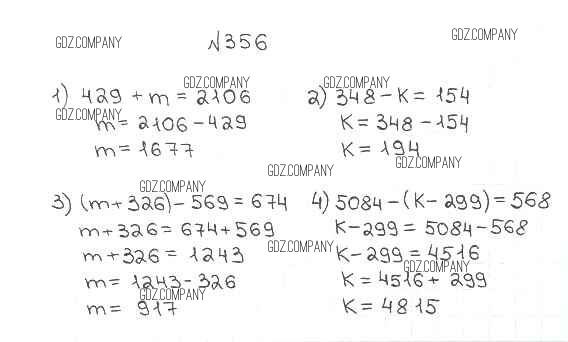 GDZ.COMPANY
№356
GDZ.COMPANY
GDZ.COMPANY
1) 429 + m = 2106
GDZ.COMPANY
m = 2106 - 429
m = 1677
GDZ.COMPANY
2) 348 - K = 154
K = 348 - 154
K = 194
GDZ.COMPANY
GDZ.COMPANY
GDZ.COMPANY
3) (m + 326) - 569 = 674
m + 326 = 674 + 569
m + 326 = 1243
m = 1243 - 326
GDZ.COMPANY
m = 917
4) 5084 - (K - 299) = 568
K - 299 = 5084 - 568
GDZ.COMPANY
K - 299 = 4516
GDZ.COMPANY
K = 4516 + 299
K = 4815